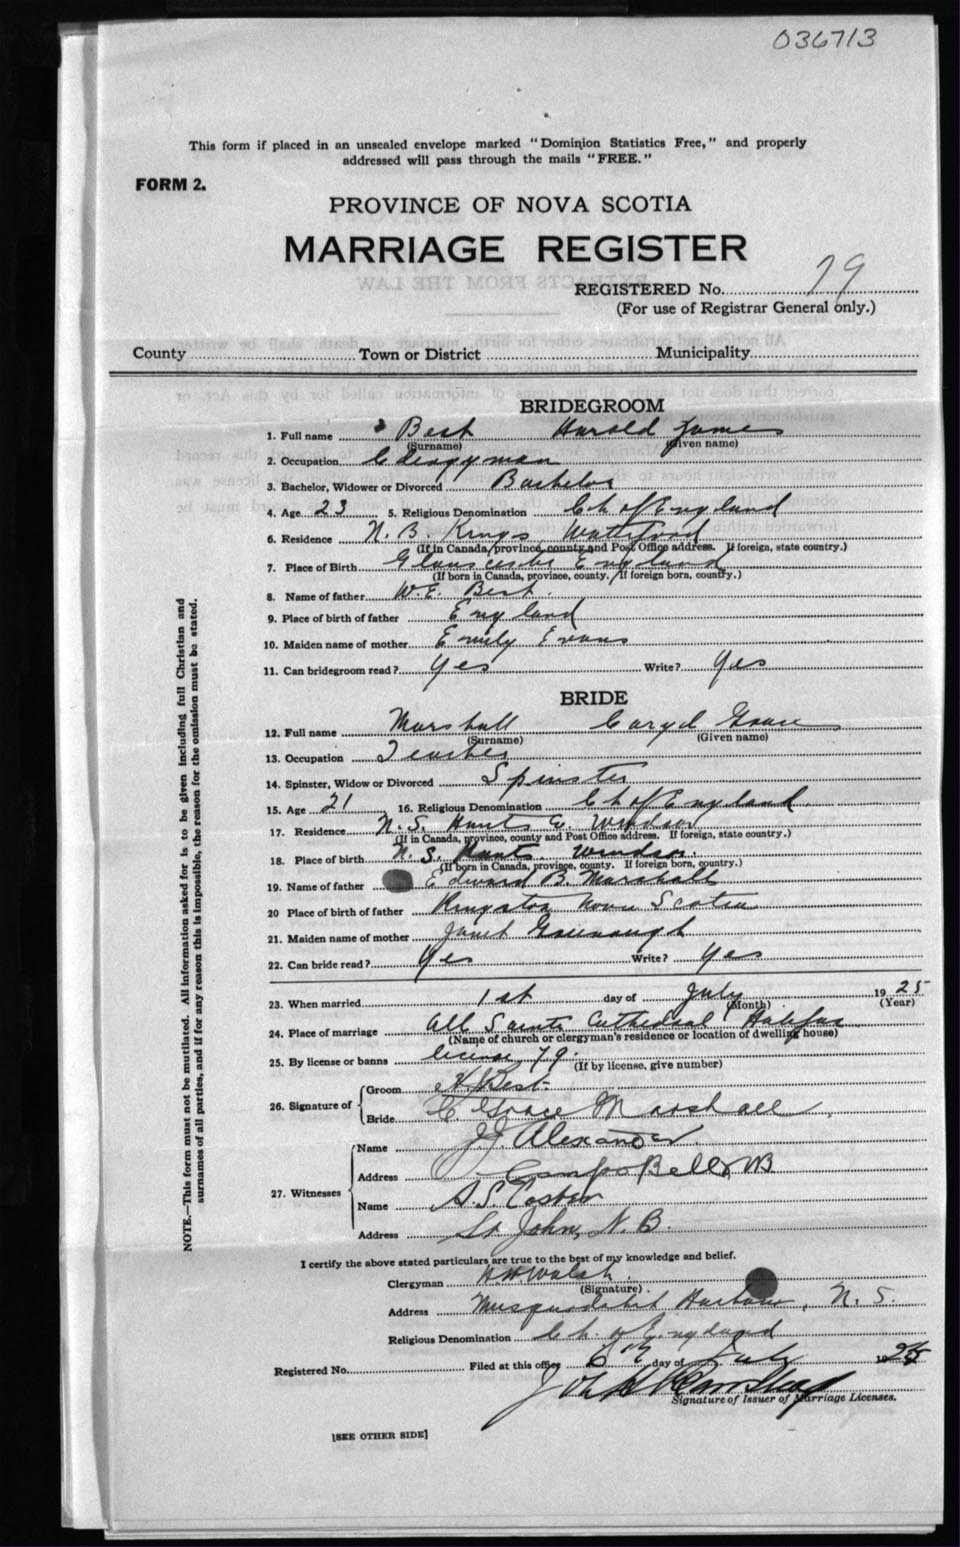 036713
This form if placed in an unsealed envelope marked "Dominion Statistics Free," and properly
addressed will pass through the mails "FREE."
FORM 2.
PROVINCE OF NOVA SCOTIA
MARRIAGE REGISTER
REGISTERED No. 79
(For use of Registrar General only.)
County Town or District Municipality
BRIDEGROOM
1. Full name Best Harold James
(Surname) (Given name)
2. Occupation Clergyman
3. Bachelor, Widower or Divorced Bachelor
4. Age 23 5. Religious Denomination Ch of England
6. Residence N. B. Kings Waterford
(If in Canada, province, county and Post Office address. If foreign, state country.)
7. Place of Birth England
(If born in Canada, province, county. If foreign born, country.)
8. Name of father W. E. Best.
9. Place of birth of father England
10. Maiden name of mother Emily Evans
11. Can bridegroom read? Yes Write? Yes
BRIDE
12. Full name Marshall Caryl Grace
(Surname) (Given name)
13. Occupation Teacher
14. Spinster, Widow or Divorced Spinster
15. Age 21 16. Religious Denomination Ch of England.
17. Residence N. S. Hants Co. Windsor
(If in Canada, province, county and Post Office address. If foreign, state country.)
18. Place of birth N. S. Hants. Windsor.
(If born in Canada, province, county. If foreign born, country.)
19. Name of father Edward B. Marshall
20 Place of birth of father Kingston Nova Scotia
21. Maiden name of mother Janet
22. Can bride read? Yes Write? Yes
23. When married 1st day of July 1925
(Month) (Year)
24. Place of marriage All Saints Cathedral Halifax
(Name of church or clergyman's residence or location of dwelling house)
25. By license or banns license 79.
(If by license, give number)
26. Signature of Groom H. Best
Bride C Grace Marshall.
27. Witnesses Name J. J. Alexander.
Address Campo Bello, NB
Name A. S. Coster
Address St. John, N. B.
I certify the above stated particulars are true to the best of my knowledge and belief.
Clergyman H. H. Walsh.
(Signature).
Address Musquodoboit Harbour, N. S.
Religious Denomination Ch. of England
Registered No. Filed at this office day of July 1925
Signature of Issuer of Marriage Licenses.
[SEE OTHER SIDE]
NOTE.—This form must not be mutilated. All information asked for is to be given including full Christian and
surnames of all parties, and if for any reason this is impossible, the reason for the omission must be stated.